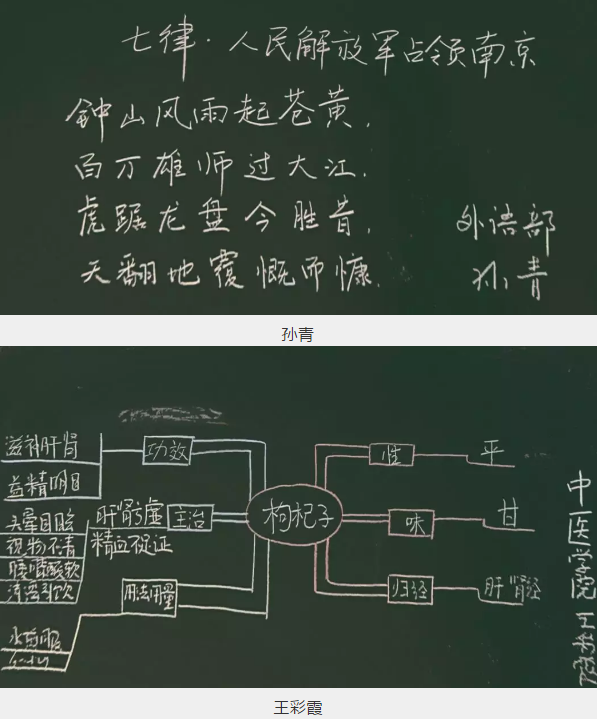 七律·人民解放军占领南京
钟山风雨起苍黄，
百万雄师过大江．
虎踞龙盘今胜昔，
天翻地覆慨而慷．
外语部
孙青
孙青
滋补肝肾
益精明目
功效
头晕目眩
视物不清
腰膝酸软
肝肾亏虚
精血不足证
主治
用法用量
水煎服
枸杞子
性
平
味
甘
归经
肝肾经
中医学院 王彩霞
王彩霞